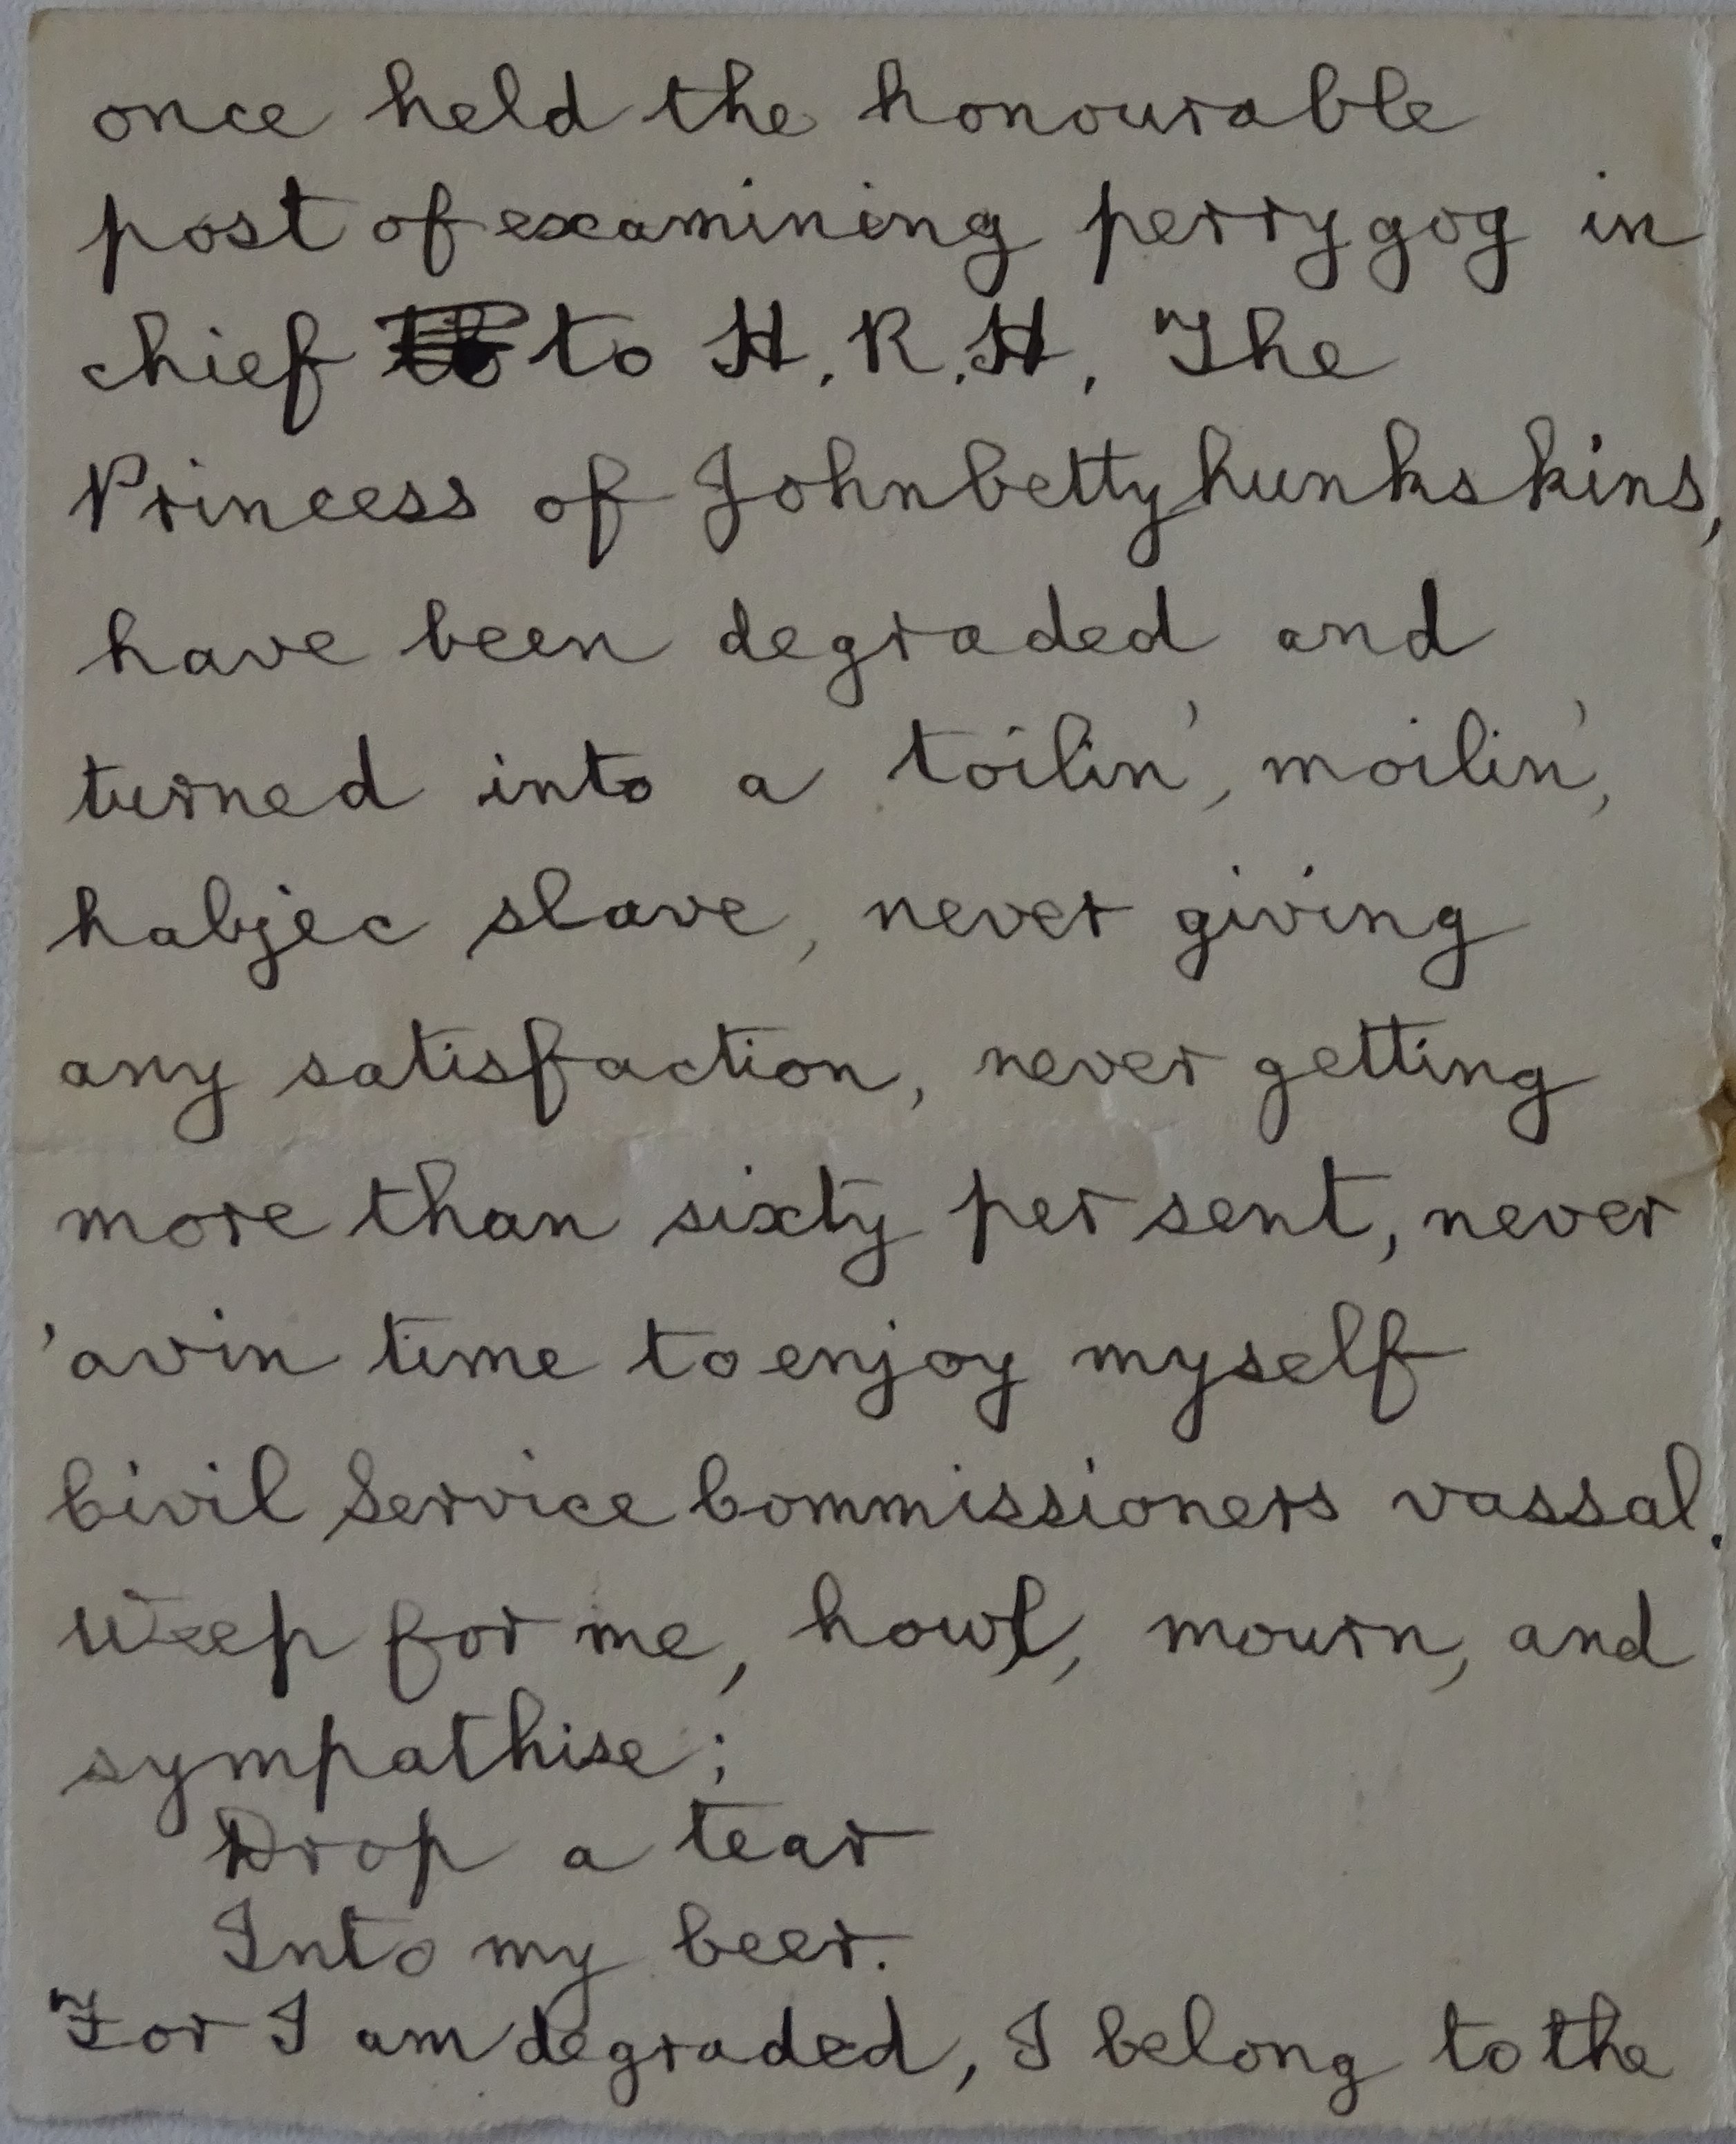 once held the honourable
post of examining perrygog in
chief to H.R.H. The
Princess of Johnbettyhunkskins,
have been degraded and
turned into a toilin', moilin',
habjec slave, never giving
any satisfaction, never getting
more than sixty per sent, never
'avin time to enjoy myself
Civil Service Commissioners vassal.
Weep for me, howl, mourn, and
sympathise;
Drop a tear
Into my beer.
For I am degraded, I belong to the